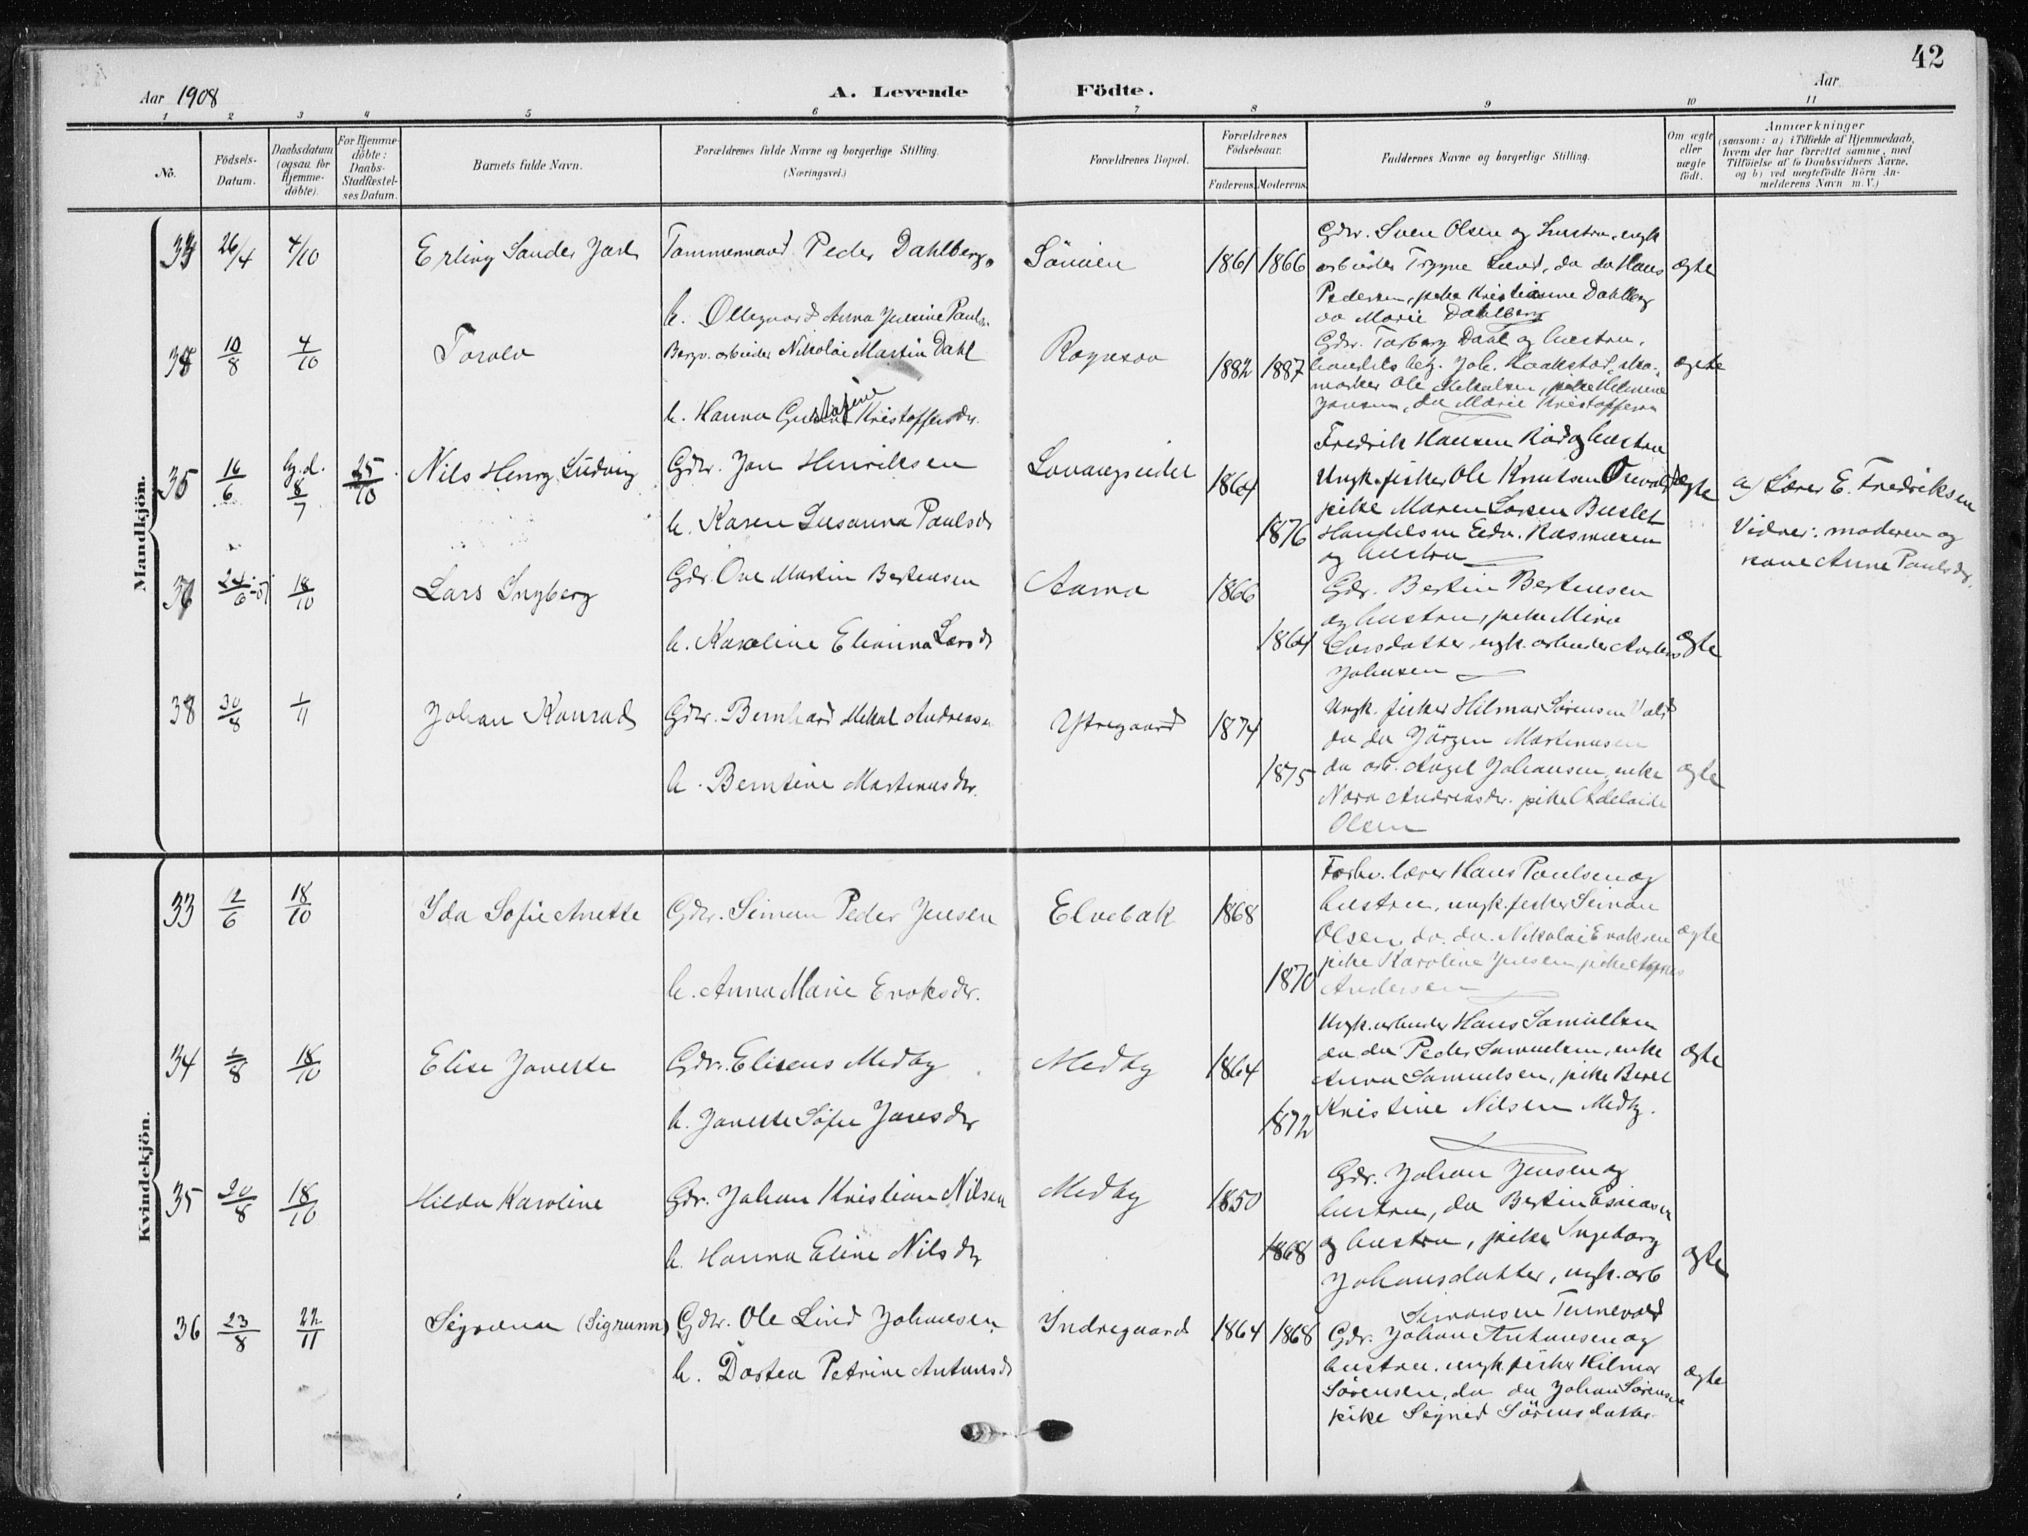 42
Aar 1908
A. Levende Födte.
Aar
1 2 3 4 5 6 7 8 9 10 11
No.
Födsels-Datum.
Daabsdatum (ogsaa for Hjemme-döbte).
For Hjemme-döbte: Daabs-Stadfæstel-ses Datum.
Barnets fulde Navn.
Forældrenes fulde Navne og borgerlige Stilling. (Næringsvei.)
Forældrenes Bopæl.
Forældrenes Födselsaar.
Faderens. Moderens.
Faddernes Navne og borgerlige Stilling.
Om ægte eller uægte födt.
Anmærkninger
(saasom: a) i Tilfælde af Hjemmedaab, hvem der har forrettet samme, med Tilföielse af to Daabsvidners Navne, og b) ved uægtefödte Börn An-melderens Navn m. V.)
Mandkjön.
33 26/4 4/10 Erling Sander Jarl
Tømmermand Peder Dahlberg
h. Ollegaard Anna Jensine Pauls.
1861 1866
Gdr. Sven Olsen og hustru, ungk
arbeider Trygve Lund, do do Hans
Pedersen, pike Kristianne Dahlberg
do Marie Dahlberg
ægte
34 10/8 4/10 Torolv
Bergv. arbeider Nikolai Martin Dahl
h. Hanna Gustavine Kristoffersdr.
1882 1887
Gdr. Torberg Dahl og hustru,
handelsbetj. Joh. Kaakstad, sko-
maker Ole Mikalsen, pike Helmine
Jensen, do Marie Kristoffersen
ægte
35 16/6 hj.d. 8/7 25/10 Nils Henry Ludvig
Gdr. Jon Henriksen
h. Karen Susanna Paulsdr
Lovangseidet
1864
1876
Fredrik Hansen Rød og hustru
Ungk. fisker Ole Knutsen
pike Maren Larsen
Handelsm Edv. Rasmussen
og hustru
ægte
a) Lærer E. Fredriksen
Vidner: moderen og
kone Anne Paulsdr.
36 24/6 18/10 Lars Ingberg
Gdr. Ove Martin Bertensen
h. Karoline Elianna Larsdr
Aarnes
1866
1864
Gdr. Bertin Bertensen
og hustru, pike Mina
Larsdatter, ungk. arbeider Anders
Johnsen
ægte
38 30/8 1/11 Johan Konrad
Gdr. Bernhard Mikal Andreassen
h. Berntine Martinusdr.
Ytregaard
1874
1875
Ungk. fisker Hilmar Sørensen
do do Jørgen Martinusen
do arb. Angel Johansen, enke
Nora Andreasdr. pike Adelaide
Olsen
ægte
Kvindekjön.
33 12/6 18/10 Ida Sofie Anette
Gdr. Simon Peder Jensen
h. Anna Marie Enoksdr.
Elvebak
1868
1870
Forhv. lærer Hans Paulsen og
hustru, ungk. fisker Simon
Olsen, do. do. Nikolai Enoksen
pike Karoline Jensen, pike Agnes
Andersen
ægte
34 1/8 18/10 Elise Janette
Gdr. Eliseus Medby
h. Janette Sofie Jensdr
Medby
1864
1872
Ungk. arbeider Hans Samuelsen
do do Peder Samuelsen, enke
Anna Samuelsen, pike Beret
Kristine Nilsen Medby.
ægte
35 30/8 18/10 Hilda Karoline
Gdr. Johan Kristian Nilsen
h. Hanna Eline Nilsdr
Medby
1850
1868
Gdr. Johan Jensen og
hustru, do Bertin Esaiassen
og hustru, pike Ingeborg
Johansdatter, ungk. arb
Simonsen Tennevold
ægte
36 23/8 22/11 (Sigrunn)
Gdr. Ole Lind Johnesen
h. Dortea Petrine Antonsdr
Indregaard
1864 1868
Gdr. Johan Antonsen og
hustru. ungk. fisker Hilmar
Sørensen, do do Johan Sørensen
pike Signe Sörensdatter
ægte